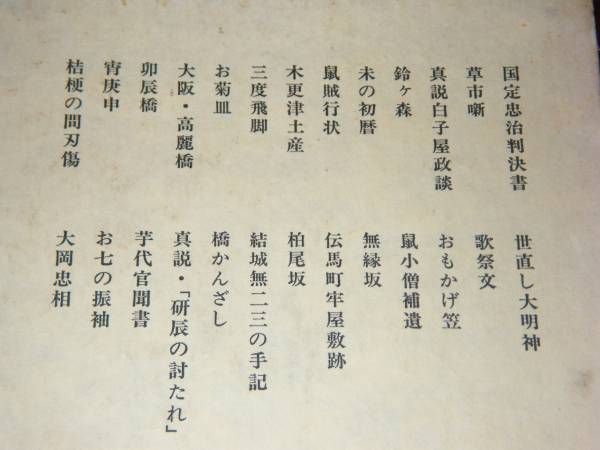 国定忠治判決書
草市噺
真説白子屋政談
鈴ヶ森
未の初暦
鼠賊行状
木更津土産
三度飛脚
お菊皿
大阪・高麗橋
卯辰橋
宵庚申
桔梗の間刃傷
世直し大明神
歌祭文
おもかげ笠
鼠小僧補遺
無縁坂
伝馬町牢屋敷跡
柏尾坂
結城無二三の手記
橋かんざし
真説・「研辰の討たれ」
芋代官聞書
お七の振袖
大岡忠相